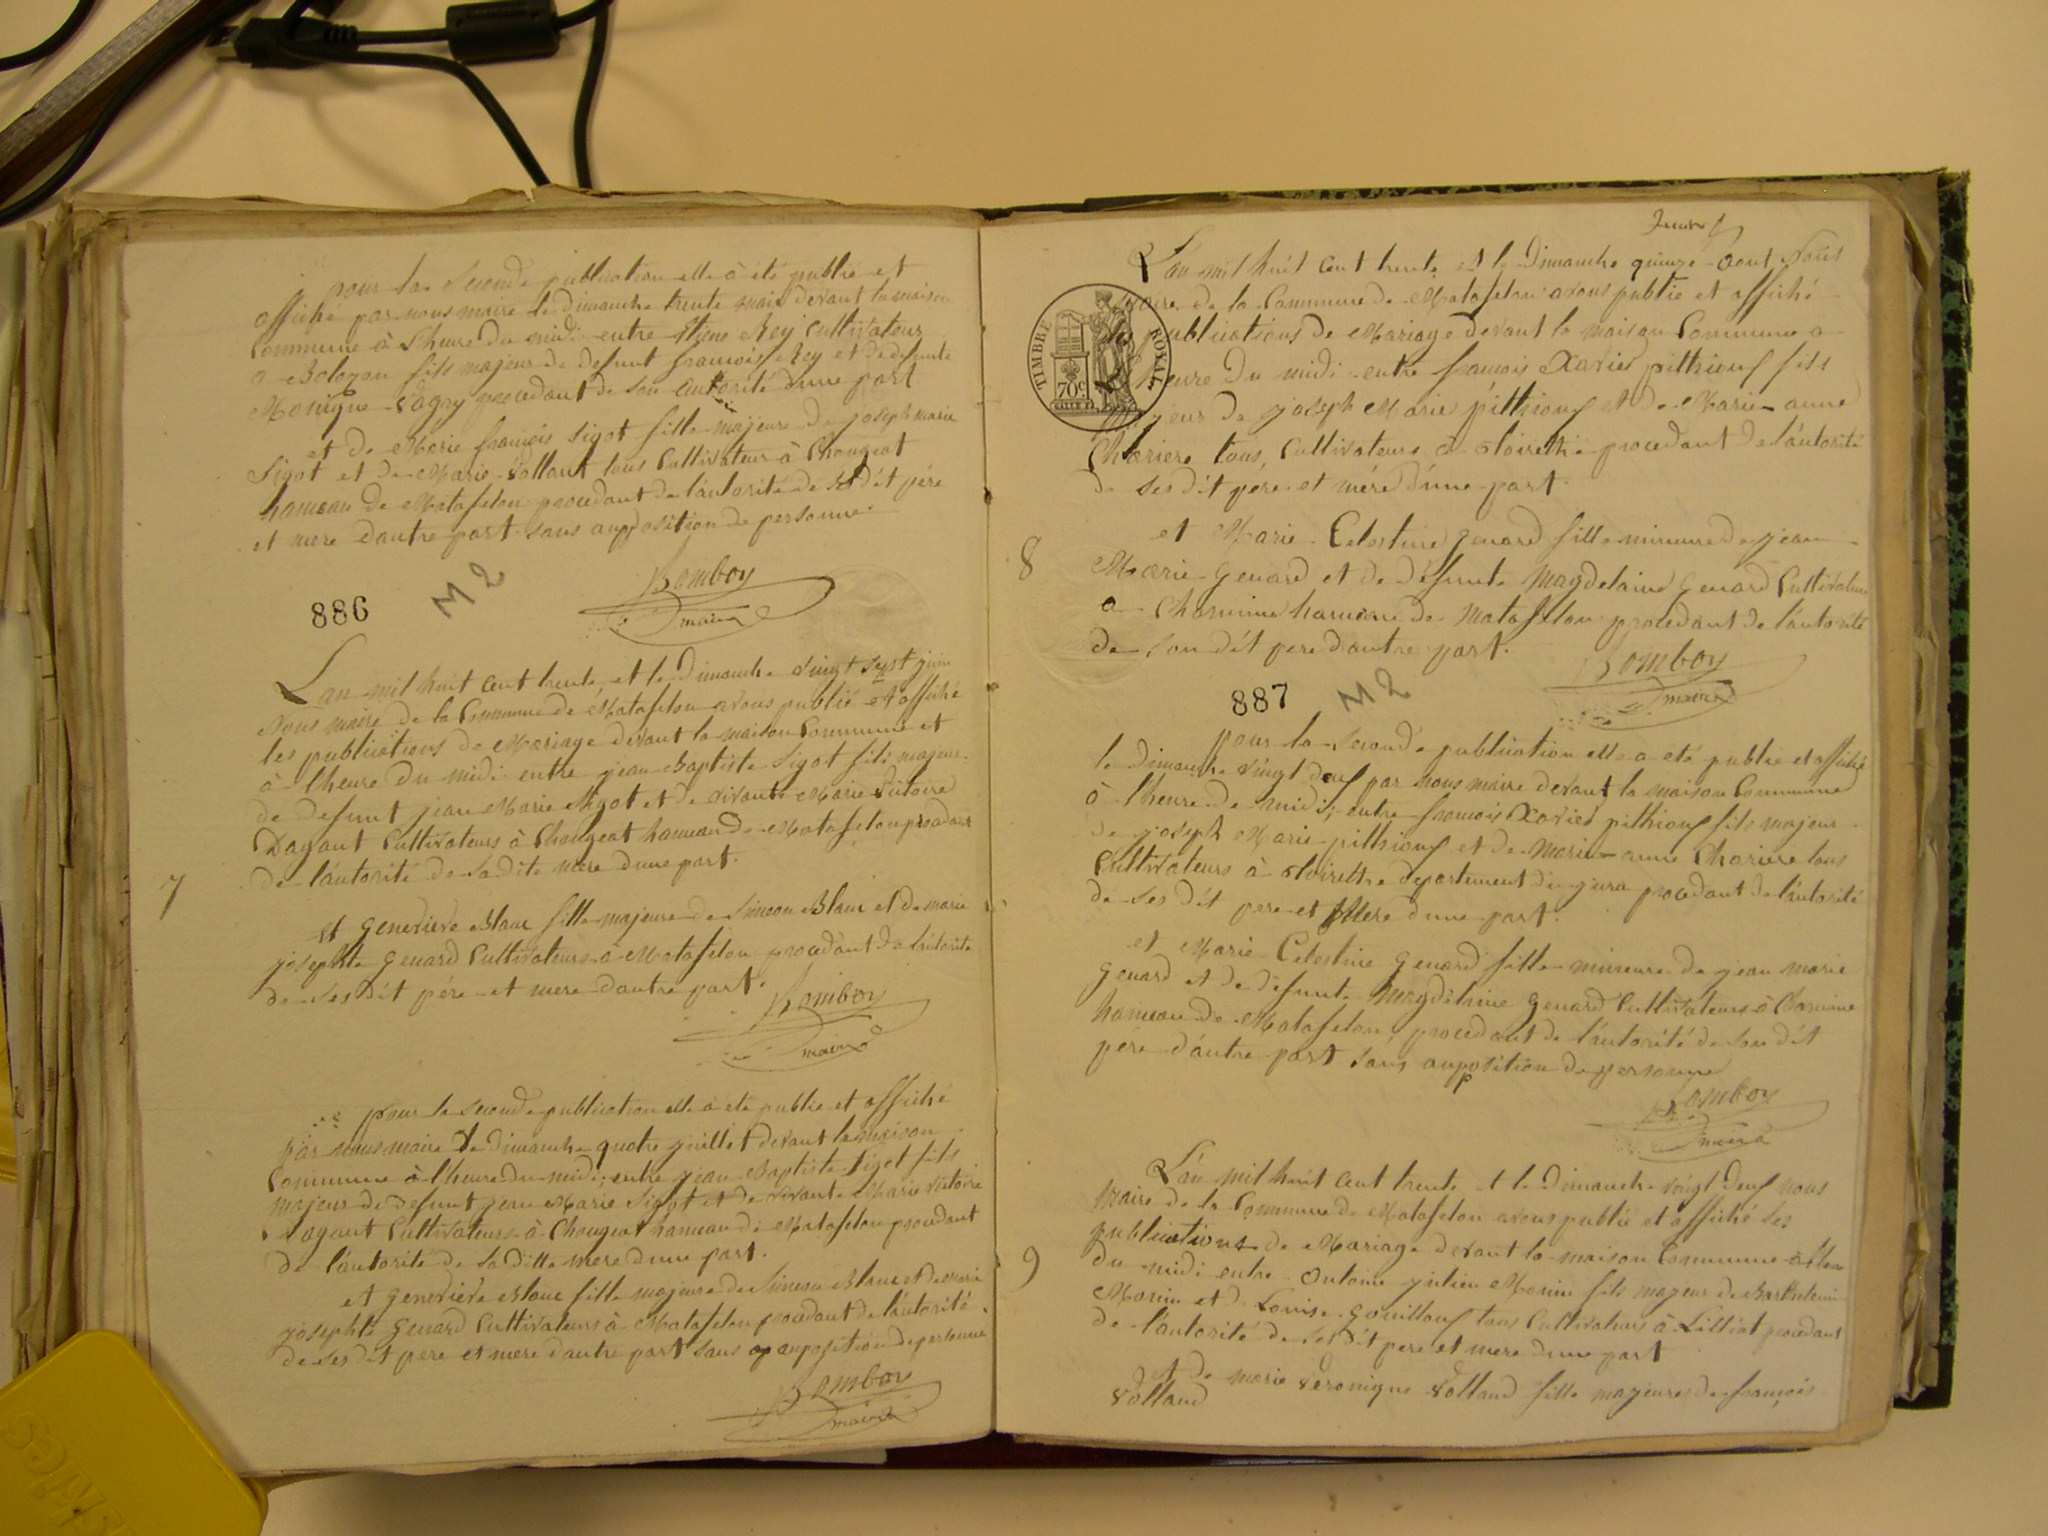 pour la seconde publication elle à été publié et
affiché par nous maire le dimanche trente mai devant la maison
Commune à l'heure du midi entre Rey Cultivateur
a Bolozon fils majeur de defunt francois Rey et de defunte
Monique procedant de son autorité dune part
et de Marie francois Sigot fille majeure de joseph marie
Sigot et de Marie Volland tous Cultivateur à Chougeat
hameau de Matafelon procedant de l'autorité de dit pére
et mere d'autre part sans aupposition de personne.
Bomboy
maire
886
M 2
L'an mil huit cent trente, et le dimanche vingt sept juin
Nous maire de la Commune de Matafelon avons publié et affiché
les publications de Mariage devant la maison Commune et
à l'heure du midi entre jean Baptiste Sigot fils majeur
de defunt jean Marie Sigot et de vivante Marie Victoire
Dagant Cultivateurs à Chougeat hameau de Matafelon procedant
de l'autorité de sa dite mere dune part.
7
et genevieve Blanc fille majeure de Simeon Blanc et de marie
josephte genard Cultivateurs à Matafelon procedant de l'autorité
de ses dit pére et mere d'autre part.
Bomboy
maire
pour la seconde publication elle à eté publié et affiché
par nous maire le dimanche quatre juillet devant la maison
Commune à l'heure du midi, entre jean Baptiste Sigot fils
majeur de defunt jean Marie Sigot et de vivante Marie victoire
Dagant Cultivateurs à Chougeat hameau de Matafelon procedant
de l'autorité de sa ditte mere dune part.
et genevieve Blanc fille majeure de Simeon Blanc et de Marie
josephte genard Cultivateurs à Matafelon procedant de l'autorité
de ses dit pere et mere d'autre part sans aupposition de personne
Bomboy
maire
L'an mil huit cent trente et le dimanche quinze aout Nous
maire de la Commune de Matafelon avons publié et affiché
les publications de Mariage devant la maison Commune a
l'heure du midi entre francois Xavier pithiouf fils
majeur de joseph Marie pithiouf et de Marie anne
Chariere tous Cultivateurs a thoirette procedant de l'autorité
de ses dit pere et mére d'une part.
TIMBRE ROYAL
70 c.
8
et Marie Celestine genard fille mineure de jean
Marie genard et de défunte Magdelaine genard Cultivateur
a Charmine hameau de Matafelon procedant de l'autorité
de son dit pere d'autre part.
Bomboy
maire
887
M 2
pour la seconde publication elle a eté publié et affiché
le dimanche vingt deuf par nous maire devant la maison Commune
à l'heure de midi, entre francois Xavier pithiouf fils majeur
de joseph Marie pithiouf et de Marie anne Chariere tous
Cultivateurs à thoirette departement du jura procedant de l'autorité
de ses dit pere et Mere d'une part.
et Marie Celestine genard fille mineure de jean marie
genard et de defunte Magdelaine genard Cultivateurs à Charmine
hameau de Matafelon procedant de l'autorité de son dit
pére d'autre part sans aupposition de personne
Bomboy
maire
L'an mil huit cent trente et le dimanche vingt deuf nous
maire de la Commune de Matafelon avons publié et affiché les
publications de Mariage devant la maison Commune
9
du midi entre antoine julien Monin fils majeur de Barthelemi
Monin et de Louise tous Cultivateurs à procedant
de l'autorité de ses dit pere et mere d'une part
et de marie veronique Volland fille majeure de françois
Volland